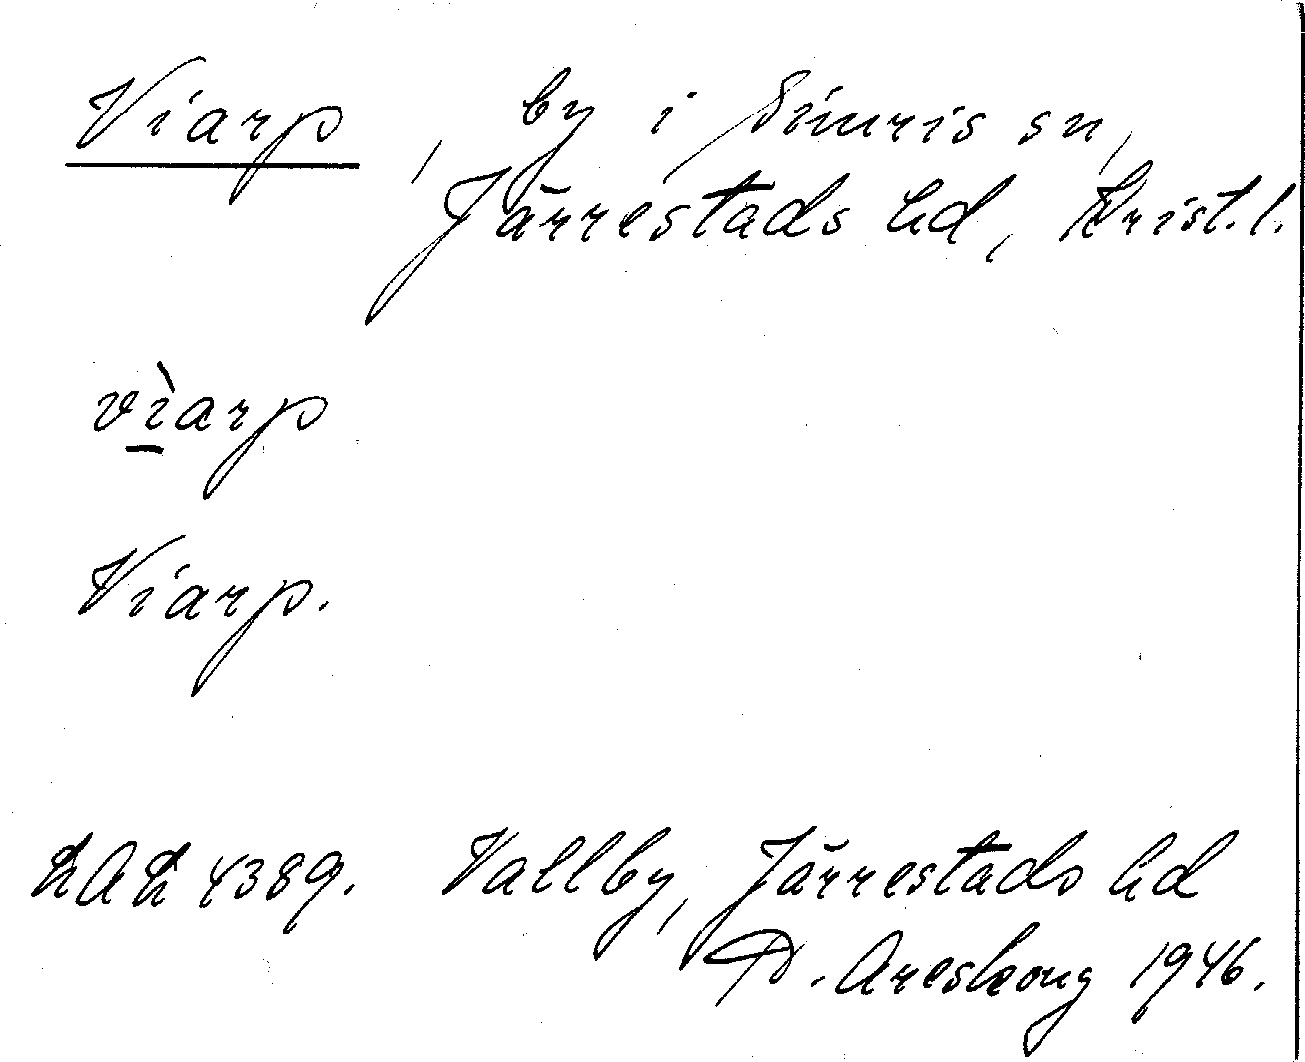 Viarp, by i Simris sn,
Järrestads hd, Krist. l.
vìarp
Viarp.
4389. Vallby, Järrestads hd
Areskoug 1946.